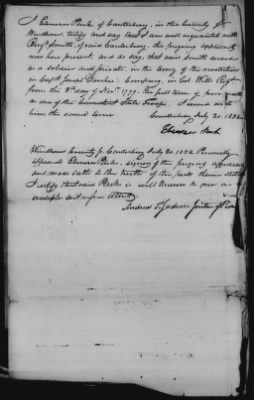 I Ebenezer Park of Canterbury, in the County of
Windham testify and say that I am well acquainted with
Benj. Smith, of said Canterbury, the foregoing applicant
now here present, and do say, that said Smith served
as a soldier and private in the Army of the revolution
in Capt. Company, in Col. Wills Regt.
from the of Nov. 1777. the full term of
as one of the Connecticut State Troops. I served with
him the same time.
Canterbury July 20. 1832
Ebenezer Park
Windham County ss. Canterbury July 20. 1832 Personally
appeared Ebenezer Park, signer of the foregoing affidavit
and made oath to the truth of the facts therein stated
I certify that said Park is well known to me as a
credible witness Attest
Andrew T. Judson Justice of Peace